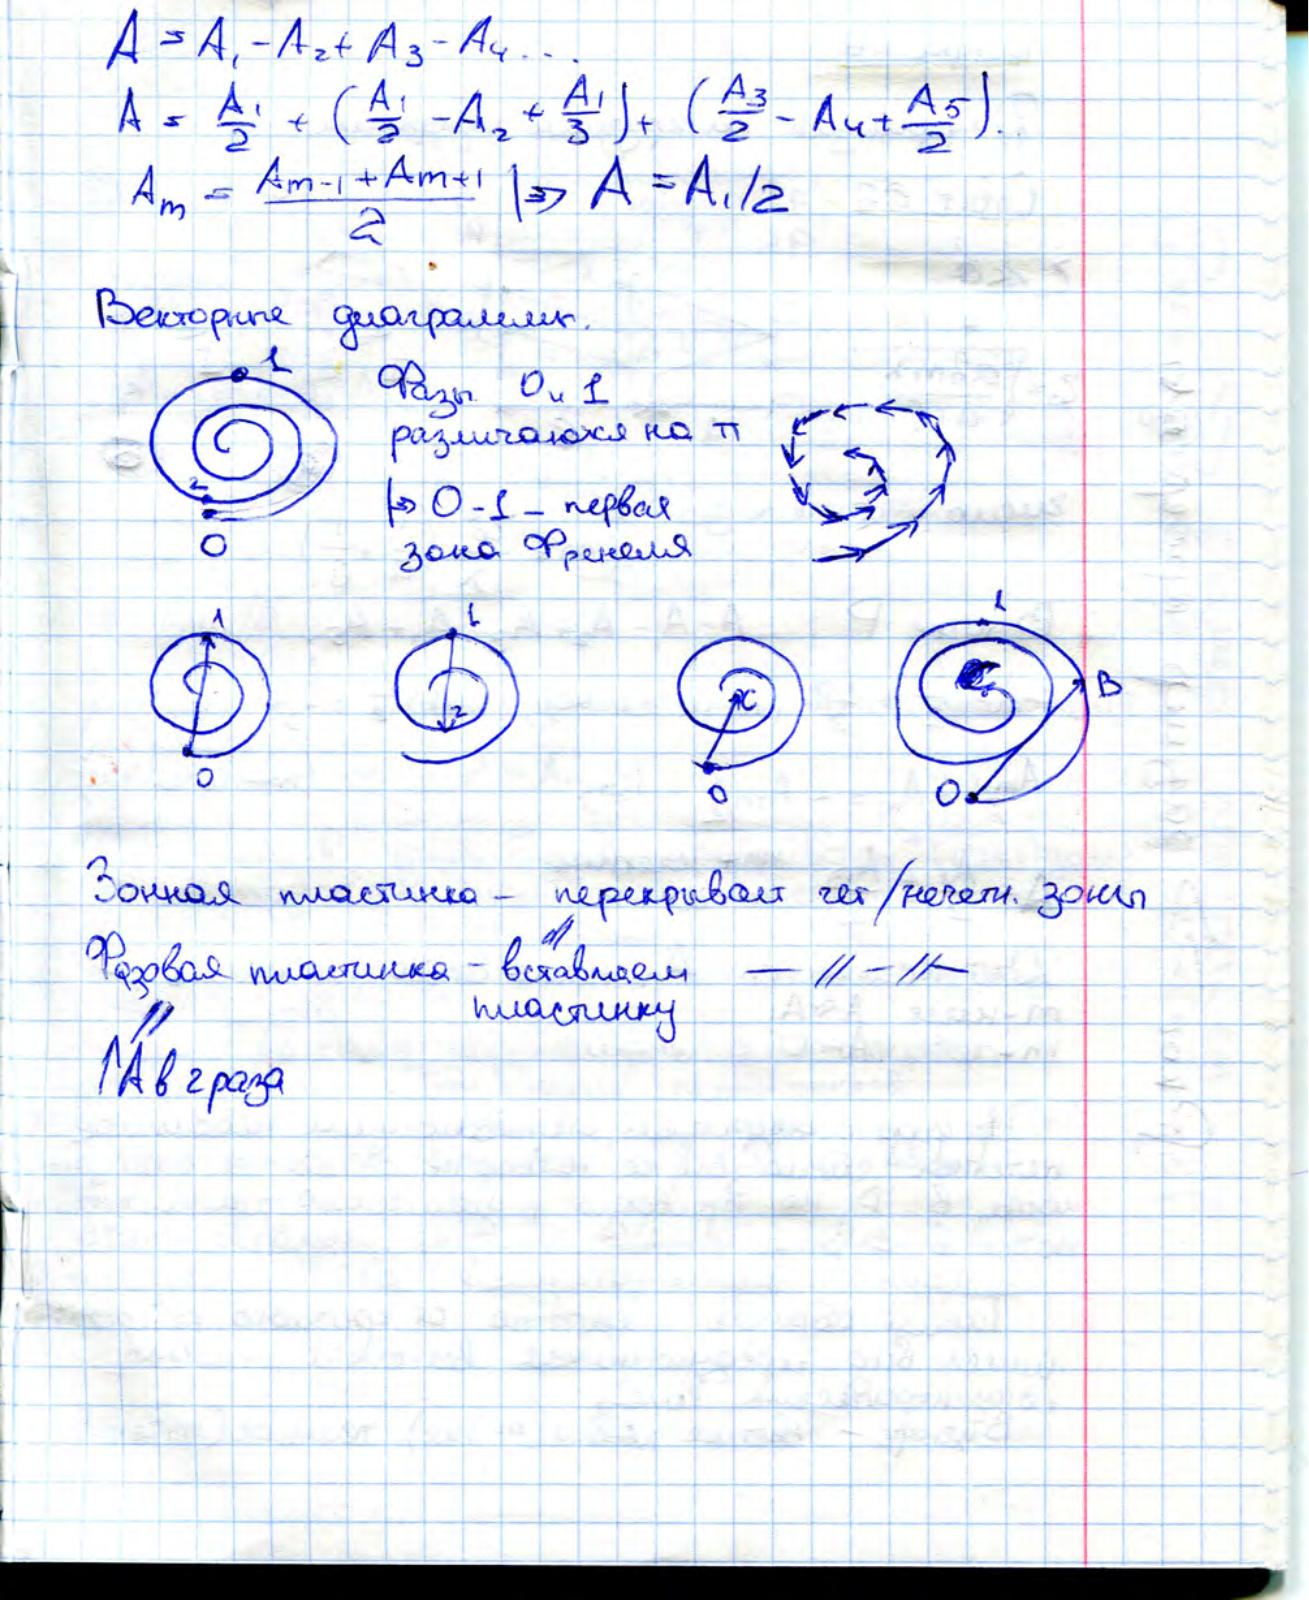 A = A₁ - A₂ + A₃ - A₄ ...
A = A₁/2 + (A₁/2 - A₂ + A₁/3) + (A₃/2 - A₄ + A₅/2)...
Aₘ = (Aₘ₋₁ + Aₘ₊₁)/2 |⇒ A = A₁/2
Векторные диаграммы.
1
2
0
Фазы 0 и 1
различаются на π
|⇒ 0-1 – первая
зона Френеля
1
0
1
2
C
0
1
B
0
Зонная пластинка – перекрывает чет/нечетн. зоны
Фазовая пластинка – вставляем — // – // —
пластинку
//
↑A в 2 раза